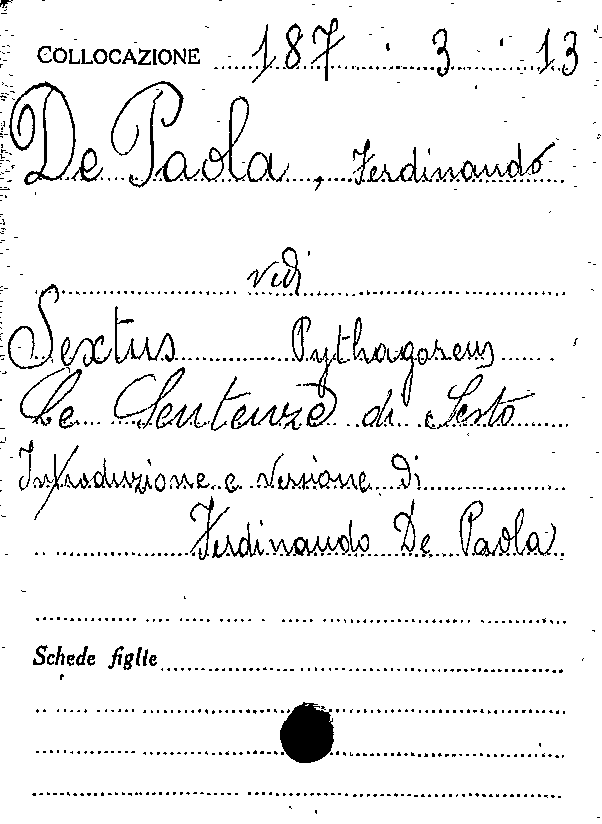 COLLOCAZIONE 187 . 3 . 13
De Paola, Ferdinando
vedi
Sextus Pythagoreus
Le Sentenze di Sesto
Introduzione e versione di
Ferdinando De Paola
Schede figlie